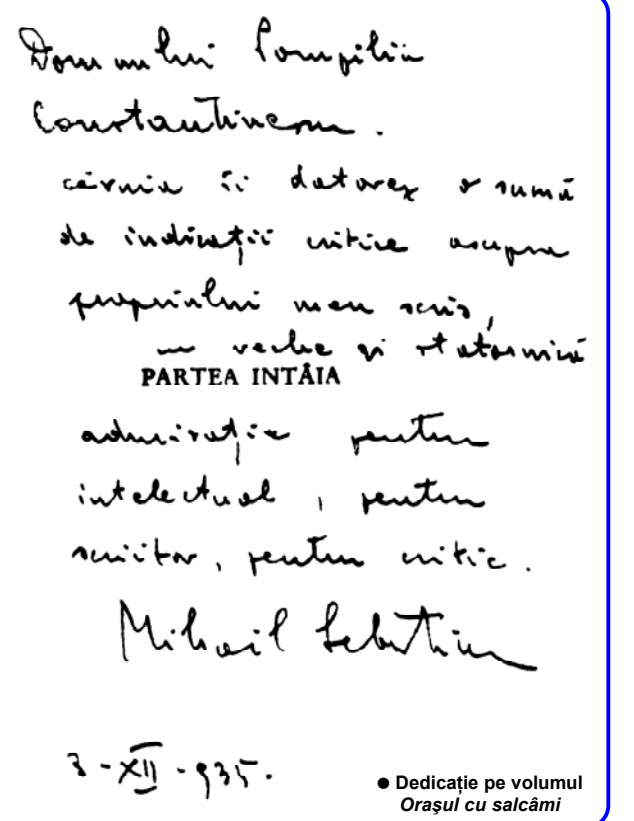 Domnului Pompiliu
Constantinescu.
căruia îi datorez o sumă
de indicații critice asupra
propriului meu scris,
cu veche și statornică
PARTEA INTÂIA
admirație pentru
intelectual, pentru
scriitor, pentru critic.
Mihail Sebastian
3 - XII - 935.
● Dedicație pe volumul
Orașul cu salcâmi